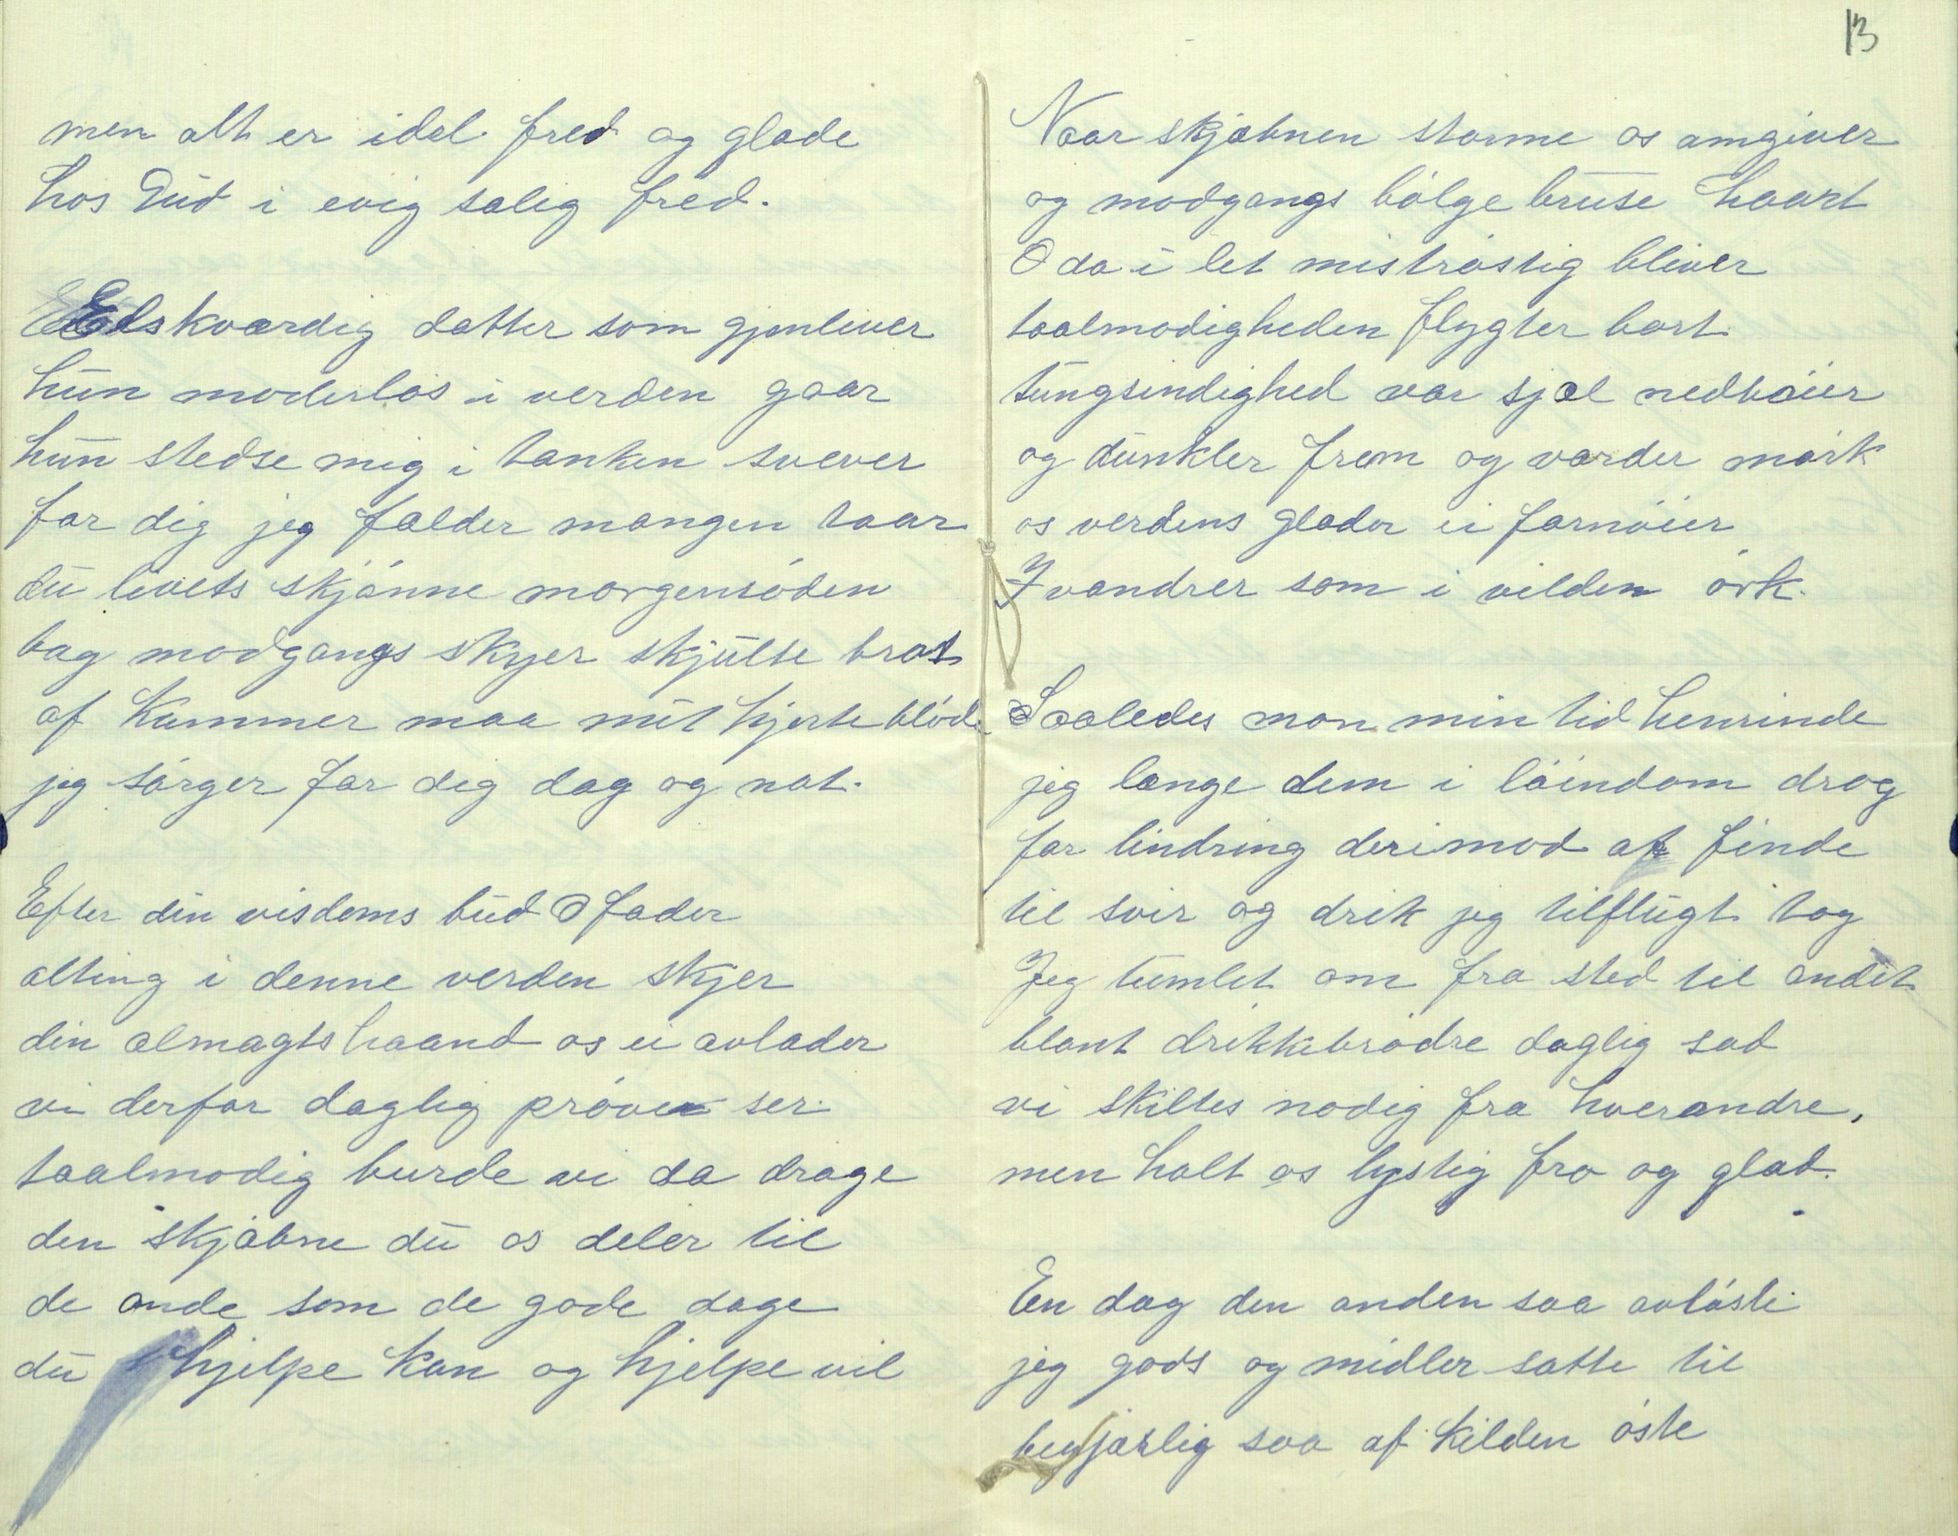 men alt er idel fred og glæde
hos Gud i evig salig fred.
Elskværdig datter som gjenlever
hun moderløs i verden gaar
hun stedse mig i tanken svever
for dig jeg fælder mangen taar
du livets skjønne morgenrøden
bag modgangs skyer skjulte brat
af kummer maa mit hjerte bløde
jeg sørger for dig dag og nat.
Efter din visdoms bud O fader
alting i denne verden skjer
din almagts haand os ei avlader
vi derfor daglig prøver ser.
taalmodig burde vi da drage
den skjæbne du os deler til
de onde som de gode dage
du hjelpe kan og hjelpe vil
13
Naar skjæbnen storme os omgiver
og modgangs bølge bruse haart
O da i let mistrøstig bliver
taalmodigheden flygter bort
tungsindighed vor sjæl nedbøier
og dunkler frem og vorder mørk
os verdens glæder ei fornøier
I vandrer som i vilden ørk.
Saaledes mon min tid henrinde
jeg længe dem i løindom drog
for lindring derimod at finde
til svir og drik jeg tilflugt tog
Jeg tumlet om fra sted til andet
blant drikkebrødre daglig sad
vi skiltes nødig fra hverandre,
men holt os lystig fro og glad.
En dag den anden saa avløste
jeg gods og midler satte til
begjærlig saa af kilden øste